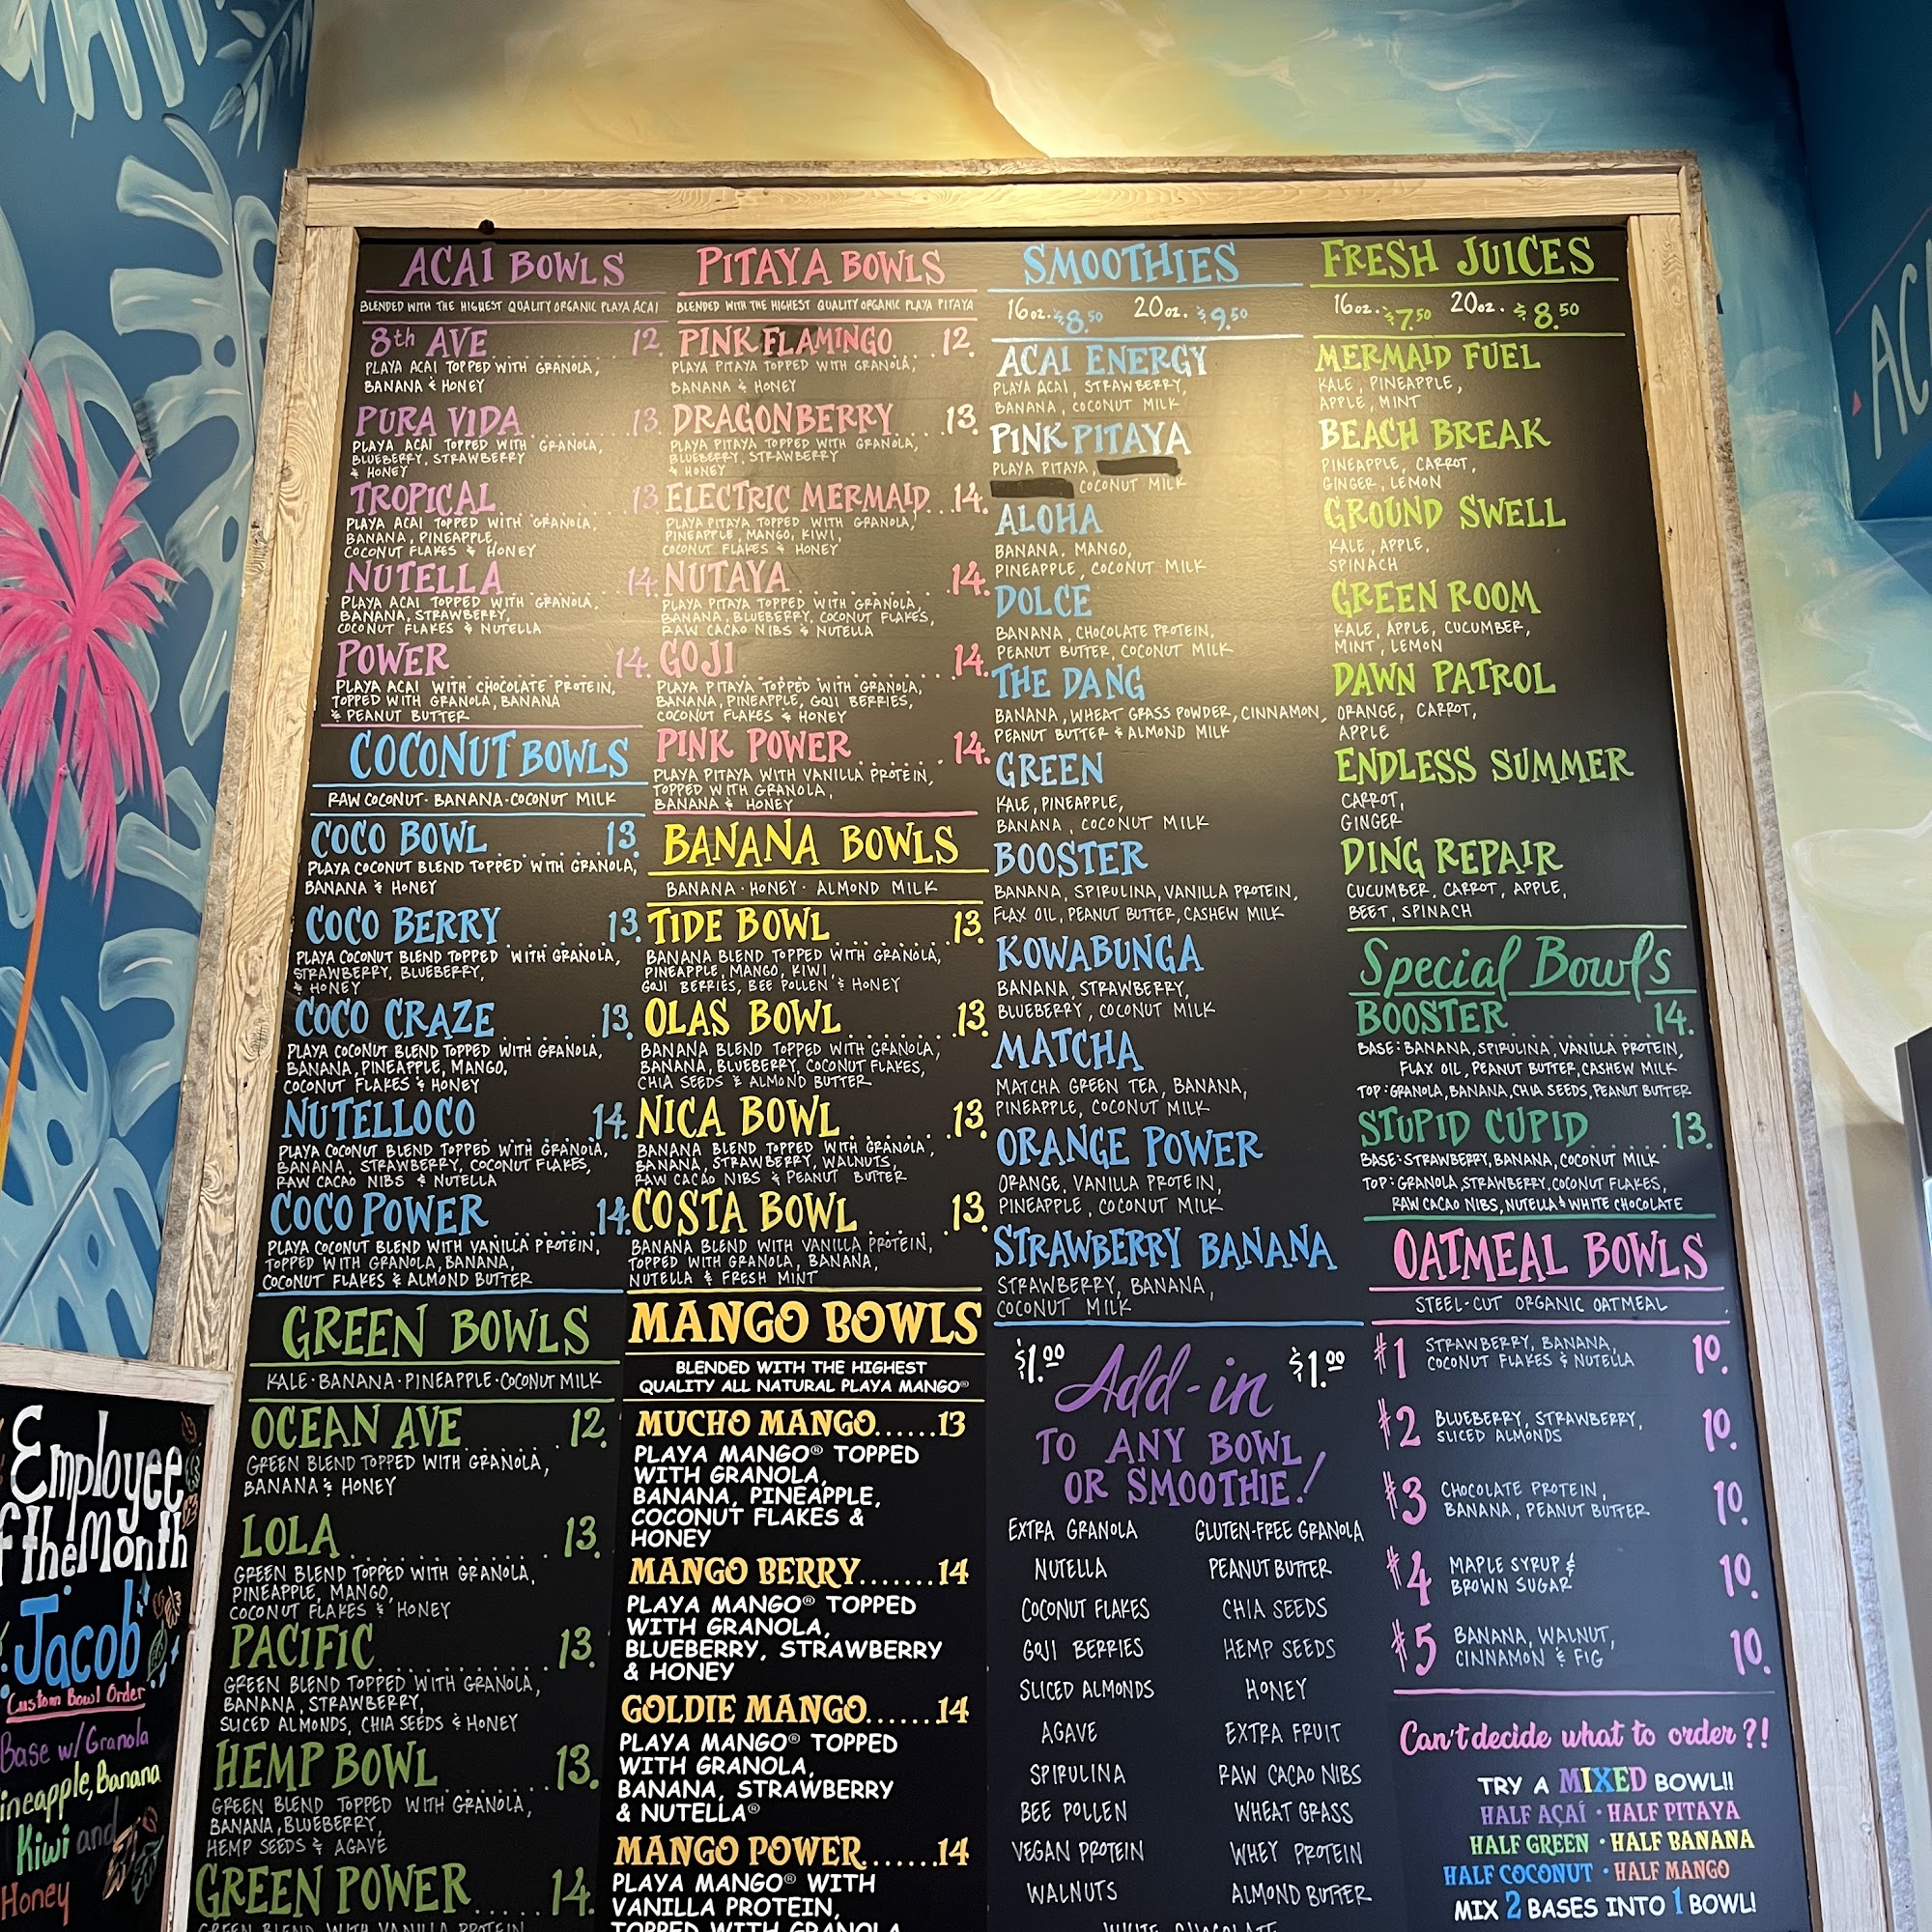 ACAI BOWLS
BLENDED WITH THE HIGHEST QUALITY ORGANIC PLAYA ACAI
8th AVE 12.
PLAYA ACAI TOPPED WITH GRANOLA,
BANANA & HONEY
PURA VIDA 13.
PLAYA ACAI TOPPED WITH GRANOLA,
BLUEBERRY, STRAWBERRY
& HONEY
TROPICAL 13
PLAYA ACAI TOPPED WITH GRANOLA,
BANANA, PINEAPPLE,
COCONUT FLAKES & HONEY
NUTELLA 14.
PLAYA ACAI TOPPED WITH GRANOLA,
BANANA, STRAWBERRY,
COCONUT FLAKES & NUTELLA
POWER 14
PLAYA ACAI WITH CHOCOLATE PROTEIN,
TOPPED WITH GRANOLA, BANANA
& PEANUT BUTTER
COCONUT BOWLS
RAW COCONUT · BANANA · COCONUT MILK
COCO BOWL 13.
PLAYA COCONUT BLEND TOPPED WITH GRANOLA,
BANANA & HONEY
COCO BERRY 13.
PLAYA COCONUT BLEND TOPPED WITH GRANOLA,
STRAWBERRY, BLUEBERRY,
& HONEY
COCO CRAZE 13.
PLAYA COCONUT BLEND TOPPED WITH GRANOLA,
BANANA, PINEAPPLE, MANGO,
COCONUT FLAKES & HONEY
NUTELLOCO 14.
PLAYA COCONUT BLEND TOPPED WITH GRANOLA,
BANANA, STRAWBERRY, COCONUT FLAKES,
RAW CACAO NIBS & NUTELLA
COCO POWER 14.
PLAYA COCONUT BLEND WITH VANILLA PROTEIN,
TOPPED WITH GRANOLA, BANANA,
COCONUT FLAKES & ALMOND BUTTER
GREEN BOWLS
KALE · BANANA · PINEAPPLE · COCONUT MILK
OCEAN AVE 12.
GREEN BLEND TOPPED WITH GRANOLA,
BANANA & HONEY
LOLA 13.
GREEN BLEND TOPPED WITH GRANOLA,
PINEAPPLE, MANGO,
COCONUT FLAKES & HONEY
PACIFIC 13.
GREEN BLEND TOPPED WITH GRANOLA,
BANANA, STRAWBERRY,
SLICED ALMONDS, CHIA SEEDS & HONEY
HEMP BOWL 13.
GREEN BLEND TOPPED WITH GRANOLA,
BANANA, BLUEBERRY,
HEMP SEEDS & AGAVE
GREEN POWER 14.
GREEN BLEND WITH VANILLA PROTEIN
PITAYA BOWLS
BLENDED WITH THE HIGHEST QUALITY ORGANIC PLAYA PITAYA
PINK FLAMINGO 12.
PLAYA PITAYA TOPPED WITH GRANOLA,
BANANA & HONEY
DRAGONBERRY 13.
PLAYA PITAYA TOPPED WITH GRANOLA,
BLUEBERRY, STRAWBERRY
& HONEY
ELECTRIC MERMAID 14.
PLAYA PITAYA TOPPED WITH GRANOLA,
PINEAPPLE, MANGO, KIWI,
COCONUT FLAKES & HONEY
NUTAYA 14.
PLAYA PITAYA TOPPED WITH GRANOLA,
BANANA, BLUEBERRY, COCONUT FLAKES,
RAW CACAO NIBS & NUTELLA
GOJI 14.
PLAYA PITAYA TOPPED WITH GRANOLA,
BANANA, PINEAPPLE, GOJI BERRIES,
COCONUT FLAKES & HONEY
PINK POWER 14.
PLAYA PITAYA WITH VANILLA PROTEIN,
TOPPED WITH GRANOLA,
BANANA & HONEY
BANANA BOWLS
BANANA · HONEY · ALMOND MILK
TIDE BOWL 13.
BANANA BLEND TOPPED WITH GRANOLA,
PINEAPPLE, MANGO, KIWI,
GOJI BERRIES, BEE POLLEN & HONEY
OLAS BOWL 13.
BANANA BLEND TOPPED WITH GRANOLA,
BANANA, BLUEBERRY, COCONUT FLAKES,
CHIA SEEDS & ALMOND BUTTER
NICA BOWL 13.
BANANA BLEND TOPPED WITH GRANOLA,
BANANA, STRAWBERRY, WALNUTS,
RAW CACAO NIBS & PEANUT BUTTER
COSTA BOWL 13.
BANANA BLEND WITH VANILLA PROTEIN,
TOPPED WITH GRANOLA, BANANA,
NUTELLA & FRESH MINT
MANGO BOWLS
BLENDED WITH THE HIGHEST
QUALITY ALL NATURAL PLAYA MANGO®
MUCHO MANGO......13
PLAYA MANGO® TOPPED
WITH GRANOLA,
BANANA, PINEAPPLE,
COCONUT FLAKES &
HONEY
MANGO BERRY.......14
PLAYA MANGO® TOPPED
WITH GRANOLA,
BLUEBERRY, STRAWBERRY
& HONEY
GOLDIE MANGO.......14
PLAYA MANGO® TOPPED
WITH GRANOLA,
BANANA, STRAWBERRY
& NUTELLA®
MANGO POWER.......14
PLAYA MANGO® WITH
VANILLA PROTEIN,
TOPPED WITH GRANOLA
SMOOTHIES
16oz. $8.50 20oz. $9.50
ACAI ENERGY
PLAYA ACAI, STRAWBERRY,
BANANA, COCONUT MILK
PINK PITAYA
PLAYA PITAYA,
COCONUT MILK
ALOHA
BANANA, MANGO,
PINEAPPLE, COCONUT MILK
DOLCE
BANANA, CHOCOLATE PROTEIN,
PEANUT BUTTER, COCONUT MILK
THE DANG
BANANA, WHEAT GRASS POWDER, CINNAMON,
PEANUT BUTTER & ALMOND MILK
GREEN
KALE, PINEAPPLE,
BANANA, COCONUT MILK
BOOSTER
BANANA, SPIRULINA, VANILLA PROTEIN,
FLAX OIL, PEANUT BUTTER, CASHEW MILK
KOWABUNGA
BANANA, STRAWBERRY,
BLUEBERRY, COCONUT MILK
MATCHA
MATCHA GREEN TEA, BANANA,
PINEAPPLE, COCONUT MILK
ORANGE POWER
ORANGE, VANILLA PROTEIN,
PINEAPPLE, COCONUT MILK
STRAWBERRY BANANA
STRAWBERRY, BANANA,
COCONUT MILK
$1.00 Add-in $1.00
TO ANY BOWL
OR SMOOTHIE!
EXTRA GRANOLA GLUTEN-FREE GRANOLA
NUTELLA PEANUT BUTTER
COCONUT FLAKES CHIA SEEDS
GOJI BERRIES HEMP SEEDS
SLICED ALMONDS HONEY
AGAVE EXTRA FRUIT
SPIRULINA RAW CACAO NIBS
BEE POLLEN WHEAT GRASS
VEGAN PROTEIN WHEY PROTEIN
WALNUTS ALMOND BUTTER
WHITE CHOCOLATE
FRESH JUICES
16oz. $7.50 20oz. $8.50
MERMAID FUEL
KALE, PINEAPPLE,
APPLE, MINT
BEACH BREAK
PINEAPPLE, CARROT,
GINGER, LEMON
GROUND SWELL
KALE, APPLE,
SPINACH
GREEN ROOM
KALE, APPLE, CUCUMBER,
MINT, LEMON
DAWN PATROL
ORANGE, CARROT,
APPLE
ENDLESS SUMMER
CARROT,
GINGER
DING REPAIR
CUCUMBER, CARROT, APPLE,
BEET, SPINACH
Special Bowls
BOOSTER 14.
BASE: BANANA, SPIRULINA, VANILLA PROTEIN,
FLAX OIL, PEANUT BUTTER, CASHEW MILK
TOP: GRANOLA, BANANA, CHIA SEEDS, PEANUT BUTTER
STUPID CUPID 13.
BASE: STRAWBERRY, BANANA, COCONUT MILK
TOP: GRANOLA, STRAWBERRY, COCONUT FLAKES,
RAW CACAO NIBS, NUTELLA & WHITE CHOCOLATE
OATMEAL BOWLS
STEEL-CUT ORGANIC OATMEAL
#1 STRAWBERRY, BANANA, 10.
COCONUT FLAKES & NUTELLA
#2 BLUEBERRY, STRAWBERRY, 10.
SLICED ALMONDS
#3 CHOCOLATE PROTEIN, 10.
BANANA, PEANUT BUTTER
#4 MAPLE SYRUP & 10.
BROWN SUGAR
#5 BANANA, WALNUT, 10.
CINNAMON & FIG
Can't decide what to order?!
TRY A MIXED BOWL!!
HALF AÇAÍ · HALF PITAYA
HALF GREEN · HALF BANANA
HALF COCONUT · HALF MANGO
MIX 2 BASES INTO 1 BOWL!
Employee
of the Month
Jacob
Custom Bowl Order
Base w/ Granola
ineapple, Banana
Kiwi and
Honey
AC